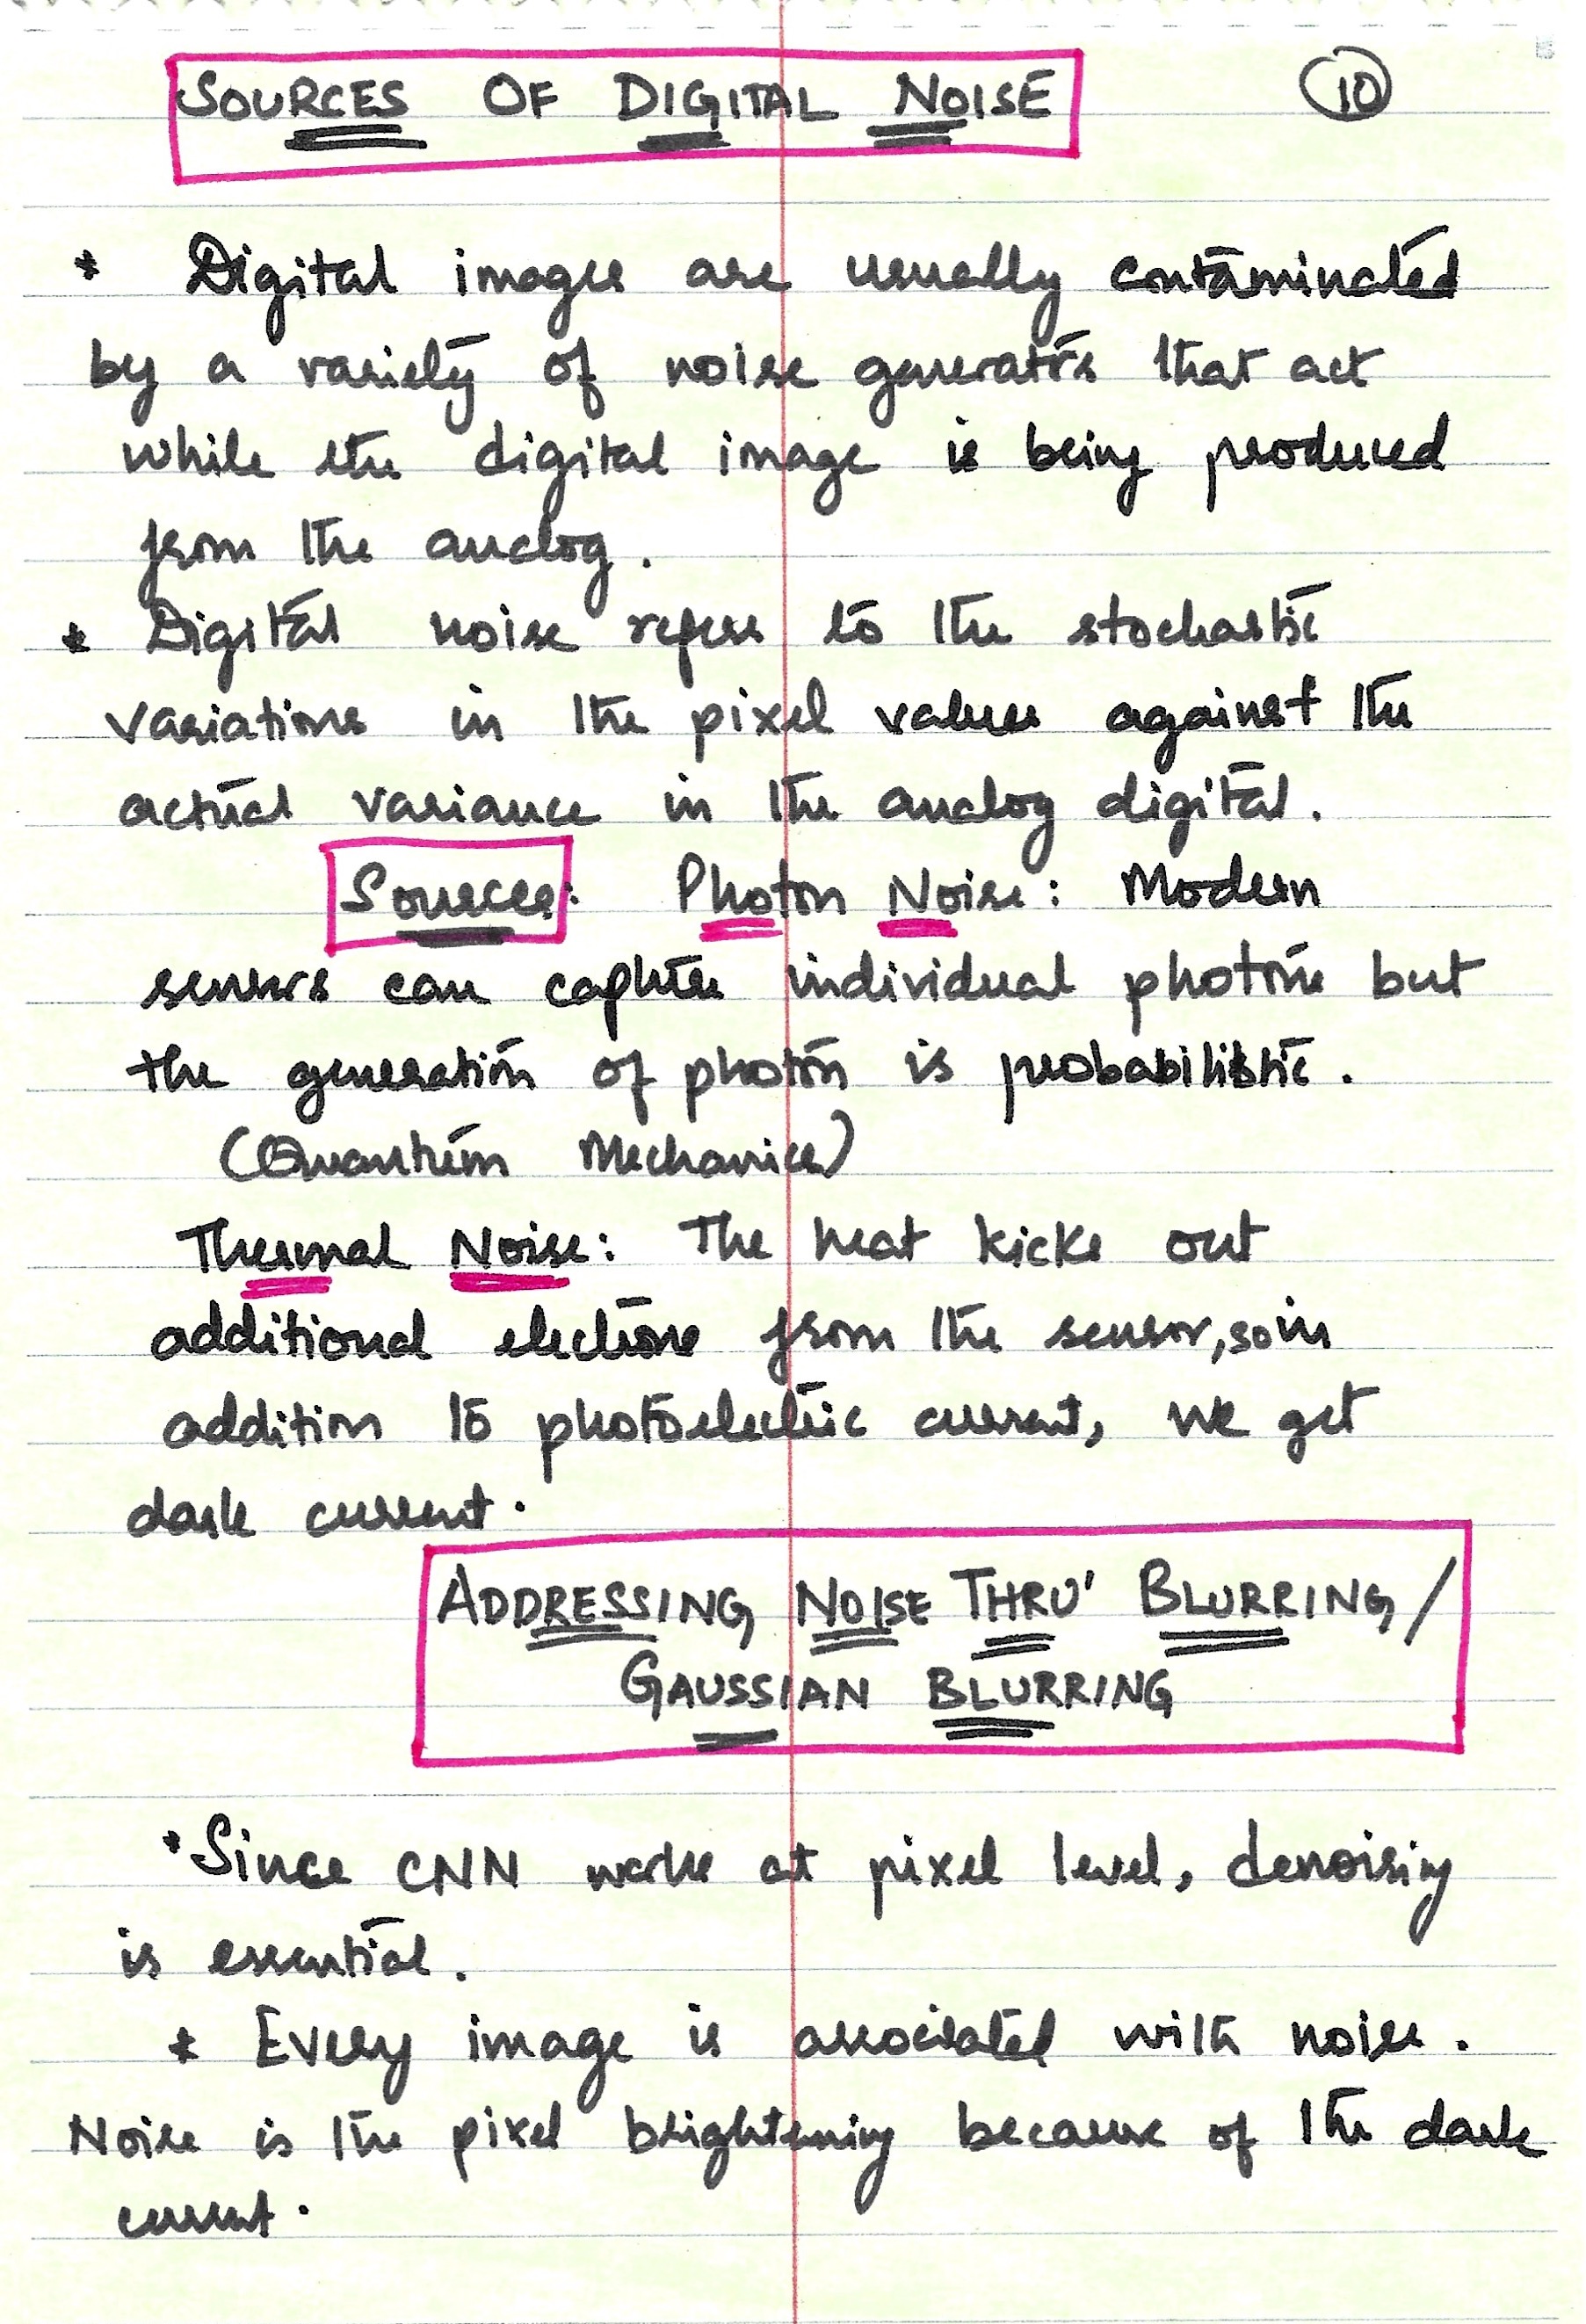 SOURCES OF DIGITAL NOISE
10
* Digital images are usually contaminated
by a variety of noise generators that act
while the digital image is being produced
from the analog.
* Digital noise refers to the stochastic
variations in the pixel values against the
actual variance in the analog digital.
Sources: Photon Noise: Modern
sensors can capture individual photons but
the generation of photon is probabilistic.
(Quantum Mechanics)
Thermal Noise: The heat kicks out
additional electrons from the sensor, so in
addition to photoelectric current, we get
dark current.
ADDRESSING NOISE THRU' BLURRING/
GAUSSIAN BLURRING
* Since CNN works at pixel level, denoising
is essential.
* Every image is associated with noise.
Noise is the pixel brightening because of the dark
current.